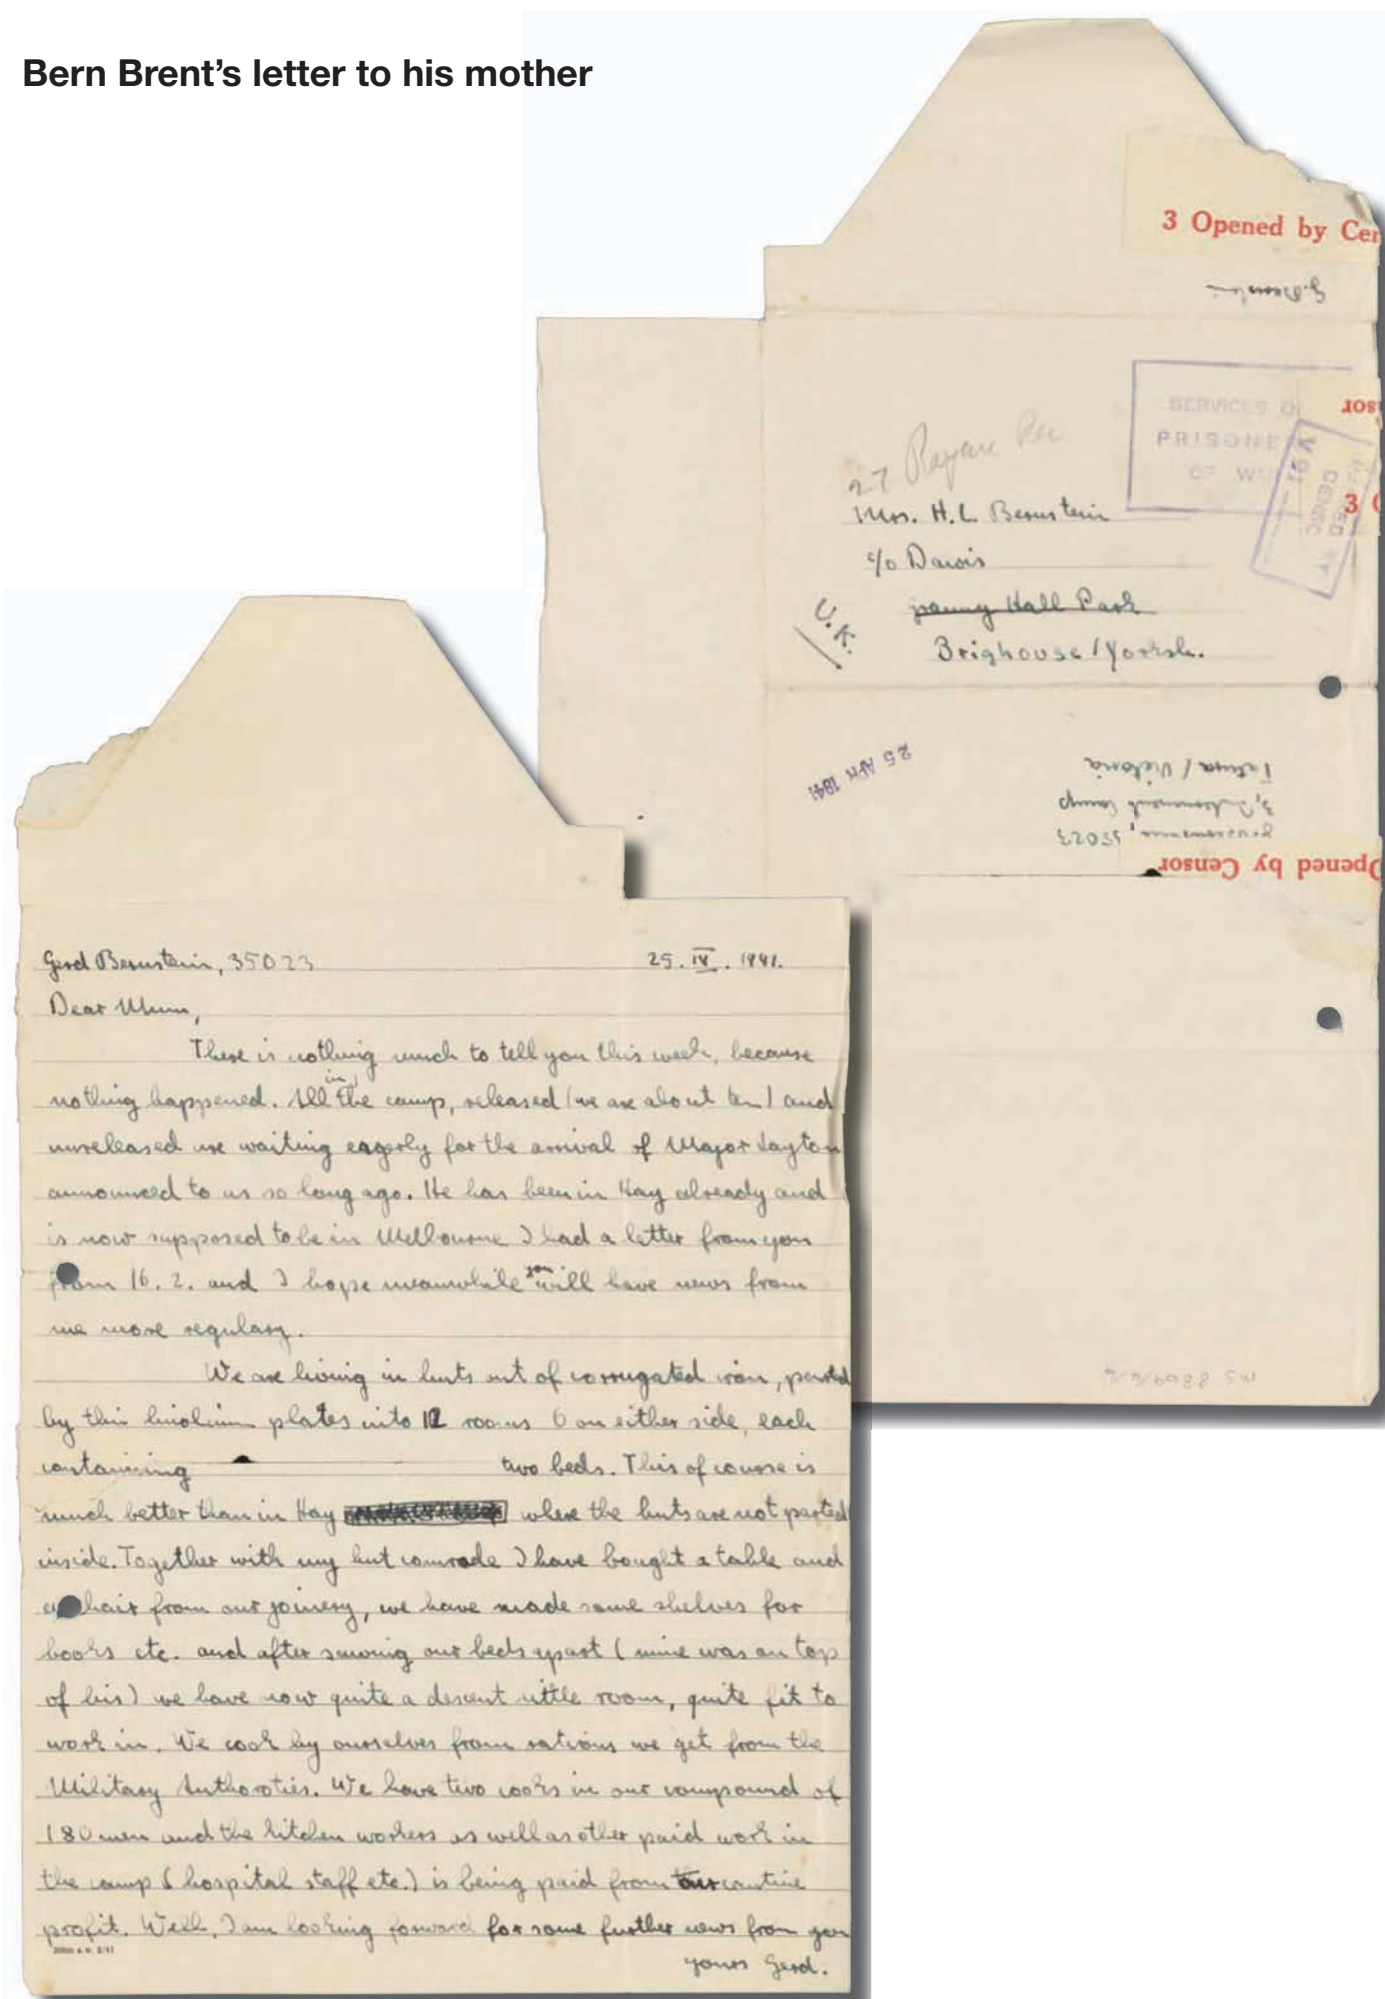 Bern Brent's letter to his mother
3 Opened by Cen
G. Bernstein
SERVICES O
PRISONE
OF W
sor
V 91
CENSO
3 O
27
Mrs. H. L. Bernstein
c/o Dawis
Hall Park
Brighouse / Yorksh.
U.K.
25 APR 1941
Tatura / Victoria
3, Internment Camp
35023
Opened by Censor
MS 8869/4/6
Gerd Bernstein, 35023 25. IV. 1941.
Dear Mum,
There is nothing much to tell you this week, because
nothing happened. All in the camp, released (we are about ten) and
unreleased are waiting eagerly for the arrival of Major Layton
announced to us so long ago. He has been in Hay already and
is now supposed to be in Melbourne I had a letter from you
from 16. 2. and I hope meanwhile you will have news from
me more regulary.
We are living in huts out of corrugated iron, parted
by thin linolium plates into 12 rooms 6 on either side, each
containing two beds. This of course is
much better than in Hay where the huts are not parted
inside. Together with my hut comrade I have bought a table and
a chair from our joinery, we have made some shelves for
books etc. and after sawing our beds apart (mine was on top
of his) we have now quite a descent little room, quite fit to
work in. We cook by ourselves from rations we get from the
Military Authoroties. We have two cooks in our compound of
180 men and the kitchen workers as well as other paid work in
the camp (hospital staff etc.) is being paid from our cantine
profit. Well, I am looking forward for some further news from you
yours Gerd.